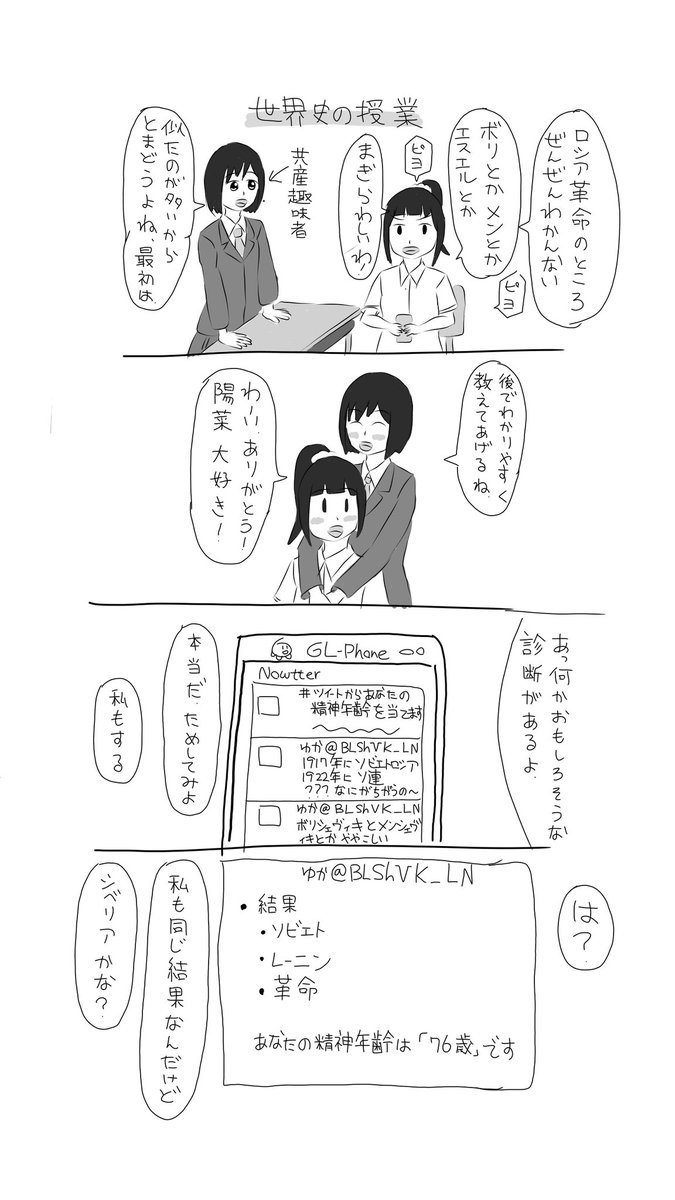 世界史の授業
ロシア革命のところ
ぜんぜんわかんない
ボリとか メンとか
エスエルとか
ピヨ
ピヨ
まぎらわしいわ!
共産趣味者
似たのが多いから
とまどうよね、最初は.
後でわかりやすく
教えてあげるね.
わーい.ありがとう!
陽菜 大好き!
あっ何かおもしろそうな
診断があるよ.
GL-Phone
Nowtter
#ツイートからあなたの
精神年齢を当てます
ゆか@BLShVK_LN
1917年にソビエトロシア
1922年にソ連
???なにがちがうの~
ゆか@BLShVK_LN
ボリシェヴィキとメンシェヴ
ィキとかややこしい
本当だ.ためしてみよ
私もする
は?
ゆか@BLShVK_LN
• 結果
• ソビエト
• レーニン
• 革命
あなたの精神年齢は「76歳」です
私も同じ結果なんだけど
シベリアかな?